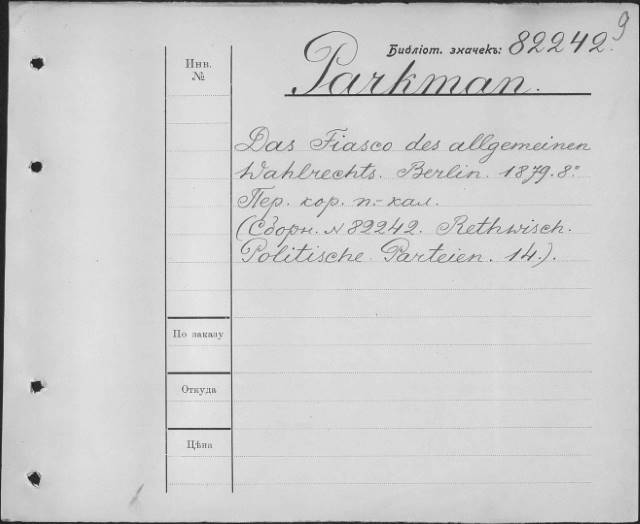 9
Библіот. значекъ: 82242.
Инв.
№
Parkman.
Das Fiasco des allgemeinen
Wahlrechts. Berlin. 1879. 8º
Пер. кор. п.-кал.
(Сборн. № 82242. Rethwisch.
Politische Parteien. 14.).
По заказу
Откуда
Цѣна